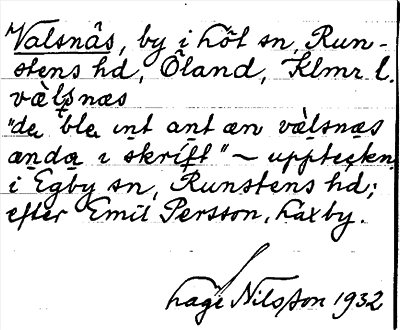 Valsnäs, by i Löt sn, Run-
stens hd, Öland, Klmr l.
vàlsnæs
"de ble int ant æn vàlsnæs
ændα i skrift" — uppteckn.
i Egby sn, Runstens hd;
efter Emil Persson, Laxby.
Lage Nilsson 1932